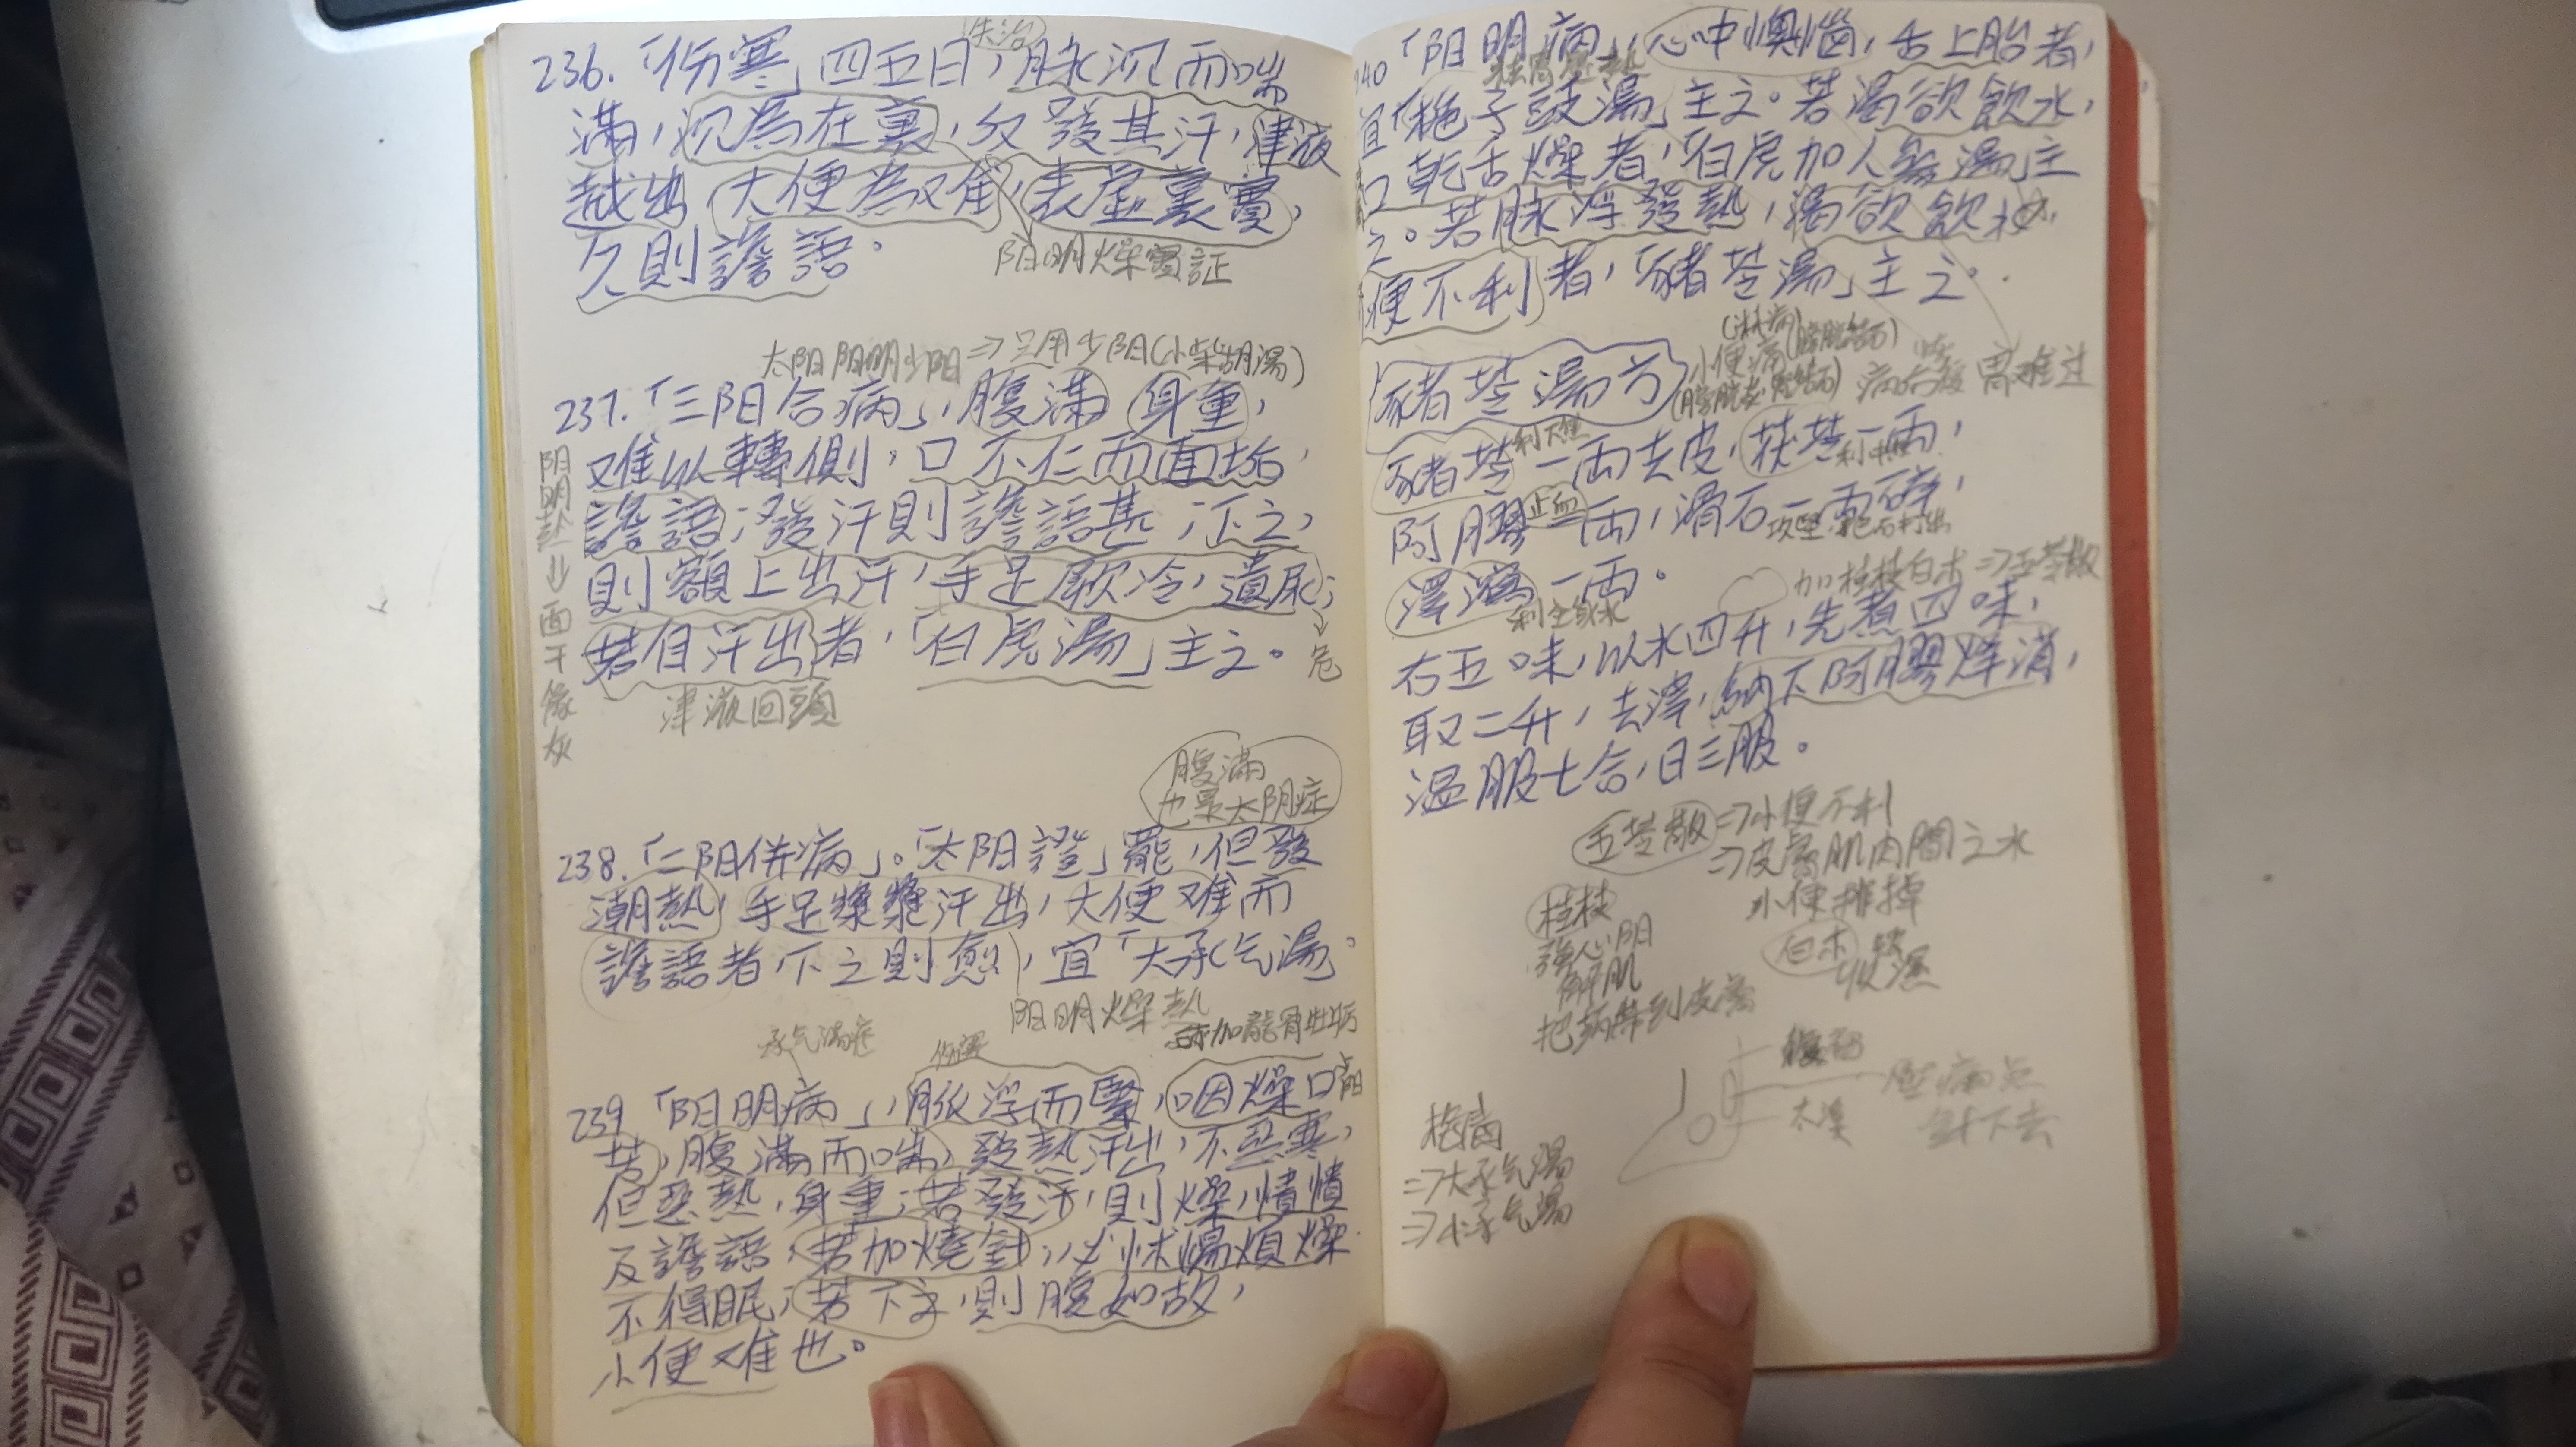 失治
236.「伤寒」四五日,脉沉而喘
滿,沉為在裏,反發其汗,津液
越出,大便為难,表虛裏實,
久則譫語。
阳明燥實証
太阳阳明少阳⇒只用少阳(小柴胡湯)
237.「三阳合病」,腹滿身重,
难以轉側,口不仁而面垢,
譫語;發汗則譫語甚;下之,
則額上出汗,手足厥冷,遺尿;
若自汗出者,「白虎湯」主之。
→危
津液回頭
阳明热⇒面干像灰
腹滿
也是太阴症
238.「二阳併病」。「太阳證」罷,但發
潮熱,手足漐漐汗出,大便难而
譫語者,下之則愈,宜「大承气湯。
阳明燥热
承气湯症
伤寒
加龍骨牡蛎
239「阳明病」,脈浮而緊,咽燥口
苦,腹滿而喘,發熱汗出,不恶寒,
但恶熱,身重;若發汗,則燥,憒憒
反譫語,若加燒針,必怵惕煩燥
不得眠,若下之,則腹如故,
小便难也。
240「阳明病」,心中懊憹,舌上胎者,
宜「梔子豉湯」主之。若渴欲飲水,
口乾舌燥者,「白虎加人參湯」主
之。若脉浮發熱,渴欲飲水,
便不利者,「豬苓湯」主之。
(淋病)
小便痛(膀胱結石)
豬苓湯方
豬苓一兩去皮,茯苓一兩,
利下焦
利中焦
阿膠一兩,滑石一兩碎,
止血
攻堅,把石打出
澤瀉一兩。
利全身水
加桂枝白术⇒五苓散
右五味,以水四升,先煮四味,
取二升,去滓,納下阿膠烊消,
温服七合,日三服。
五苓散⇒小便不利
⇒皮膚肌肉間之水
小便排掉
桂枝
強心阳
解肌
把病解到皮膚
白术
收濕
復溜
壓痛点
太溪
針下去
⇒大承气湯
⇒小承气湯